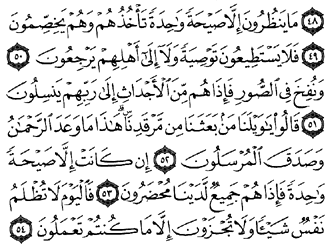 ٤٨ مَا يَنظُرُونَ إِلَّا صَيْحَةً وَٰحِدَةً تَأْخُذُهُمْ وَهُمْ يَخِصِّمُونَ
٤٩ فَلَا يَسْتَطِيعُونَ تَوْصِيَةً وَلَآ إِلَىٰٓ أَهْلِهِمْ يَرْجِعُونَ ٥٠
وَنُفِخَ فِى ٱلصُّورِ فَإِذَا هُم مِّنَ ٱلْأَجْدَاثِ إِلَىٰ رَبِّهِمْ يَنسِلُونَ
٥١ قَالُوا۟ يَٰوَيْلَنَا مَنۢ بَعَثَنَا مِن مَّرْقَدِنَا ۗ هَٰذَا مَا وَعَدَ ٱلرَّحْمَٰنُ
وَصَدَقَ ٱلْمُرْسَلُونَ ٥٢ إِن كَانَتْ إِلَّا صَيْحَةً
وَٰحِدَةً فَإِذَا هُمْ جَمِيعٌ لَّدَيْنَا مُحْضَرُونَ ٥٣ فَٱلْيَوْمَ لَا تُظْلَمُ
نَفْسٌ شَيْـًٔا وَلَا تُجْزَوْنَ إِلَّا مَا كُنتُمْ تَعْمَلُونَ ٥٤